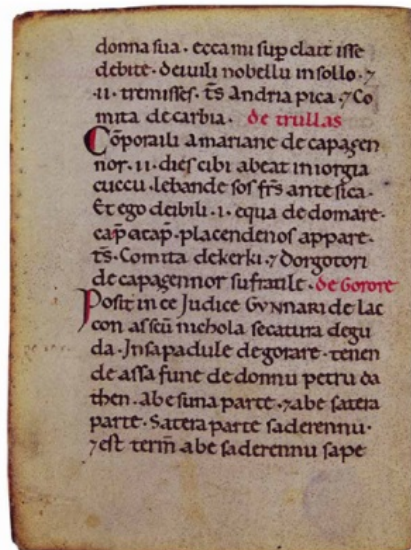 donna sua. eccami sup clait isse
debite. deiuili nobellu in sollo. ⁊
.ii. tremisses. t̄s Andria pica. ⁊ Co
mita de carbia. de trullas
Cōporaili a mariane de capagen
nor. ii. dies cibi abeat in iorgia
cuccu. lebande sos fr̄s ante sica.
Et ego deibili. i. equa de domare.
cap̄ atap̄. placendenos appare.
t̄s. Comita dekerki. ⁊ dorgotori
de capagennor su fratile. de Gorore
Posit in ce Judice GVNNARI de lac
con a sc̄u nichola secatura degu
da. Jnsa padule de gorare. tenen
de assa fune de donnu petru da
then. abe suna parte. ⁊ abe satera
parte. Satera parte sa derennu.
⁊ est term̄ abe sa derennu sape